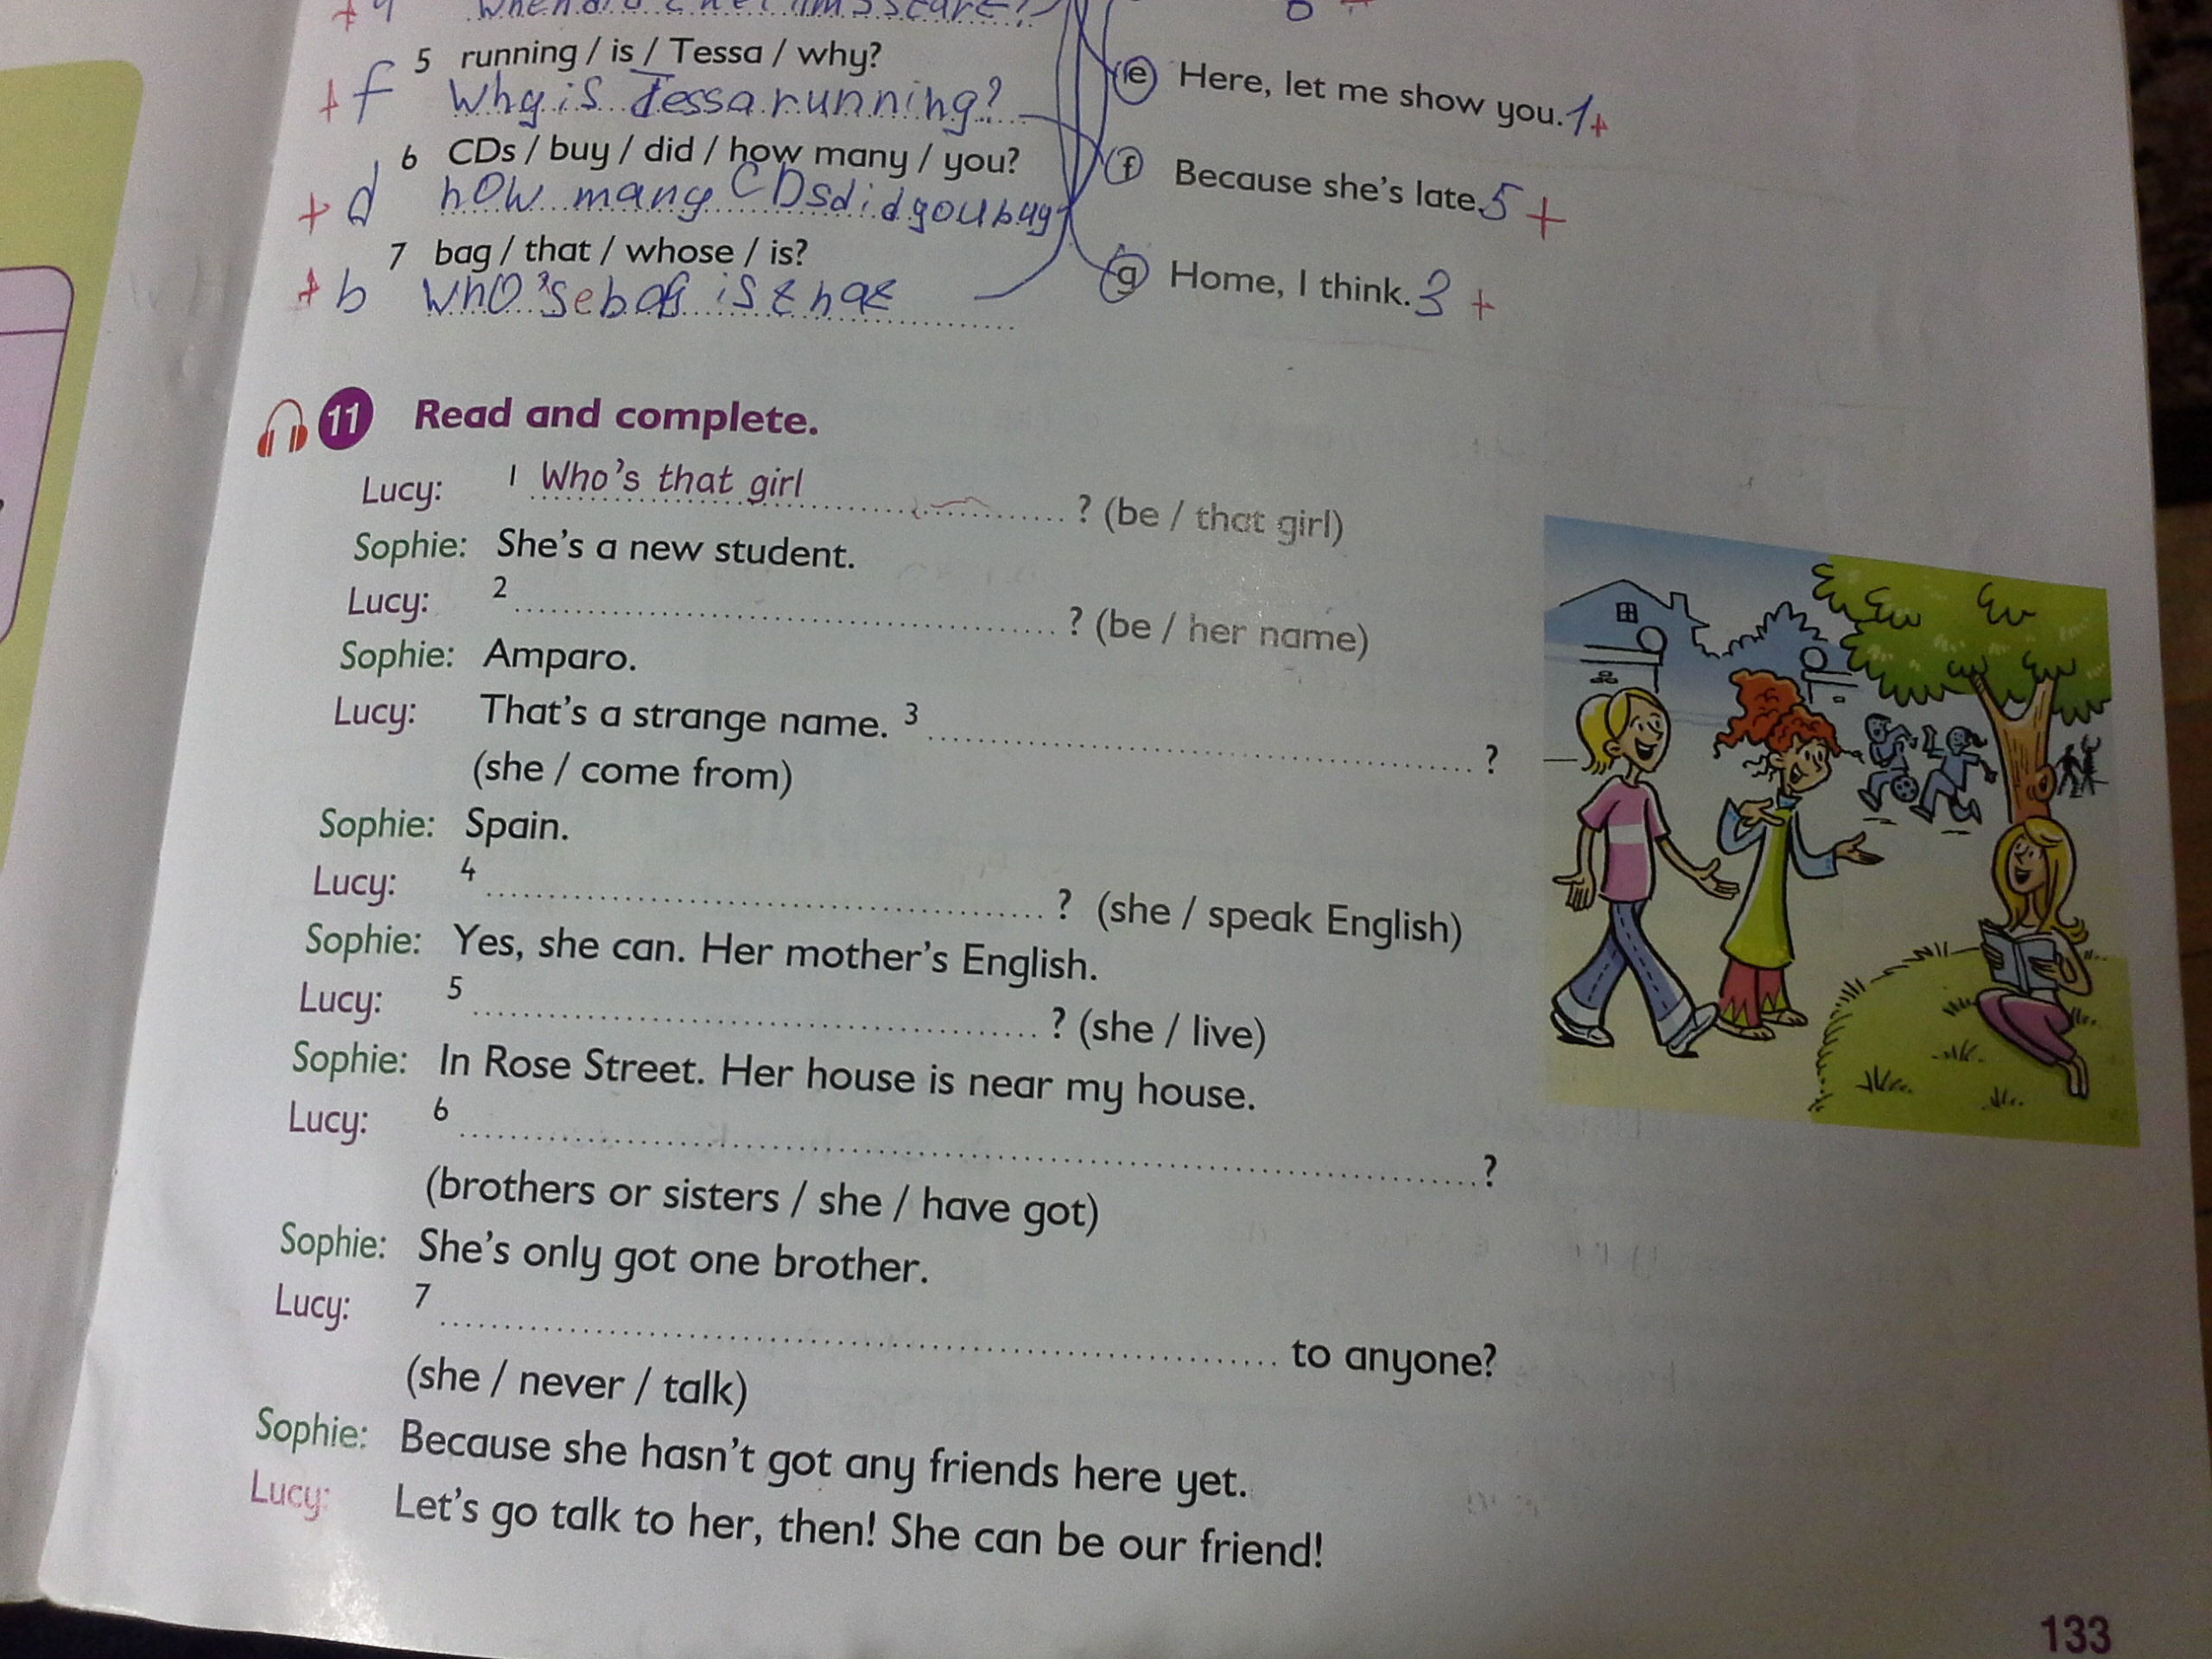 5 running / is / Tessa / why?
+ f Why is Tessa running?
6 CDs / buy / did / how many / you?
+ d how many CDs did you buy?
7 bag / that / whose / is?
+ b who'se bag is that
e Here, let me show you. 1+
f Because she's late. 5 +
g Home, I think. 3 +
11 Read and complete.
Lucy: 1 Who's that girl ? (be / that girl)
Sophie: She's a new student.
Lucy: 2 ? (be / her name)
Sophie: Amparo.
Lucy: That's a strange name. 3 ?
(she / come from)
Sophie: Spain.
Lucy: 4 ? (she / speak English)
Sophie: Yes, she can. Her mother's English.
Lucy: 5 ? (she / live)
Sophie: In Rose Street. Her house is near my house.
Lucy: 6 ?
(brothers or sisters / she / have got)
Sophie: She's only got one brother.
Lucy: 7 to anyone?
(she / never / talk)
Sophie: Because she hasn't got any friends here yet.
Lucy: Let's go talk to her, then! She can be our friend!
133